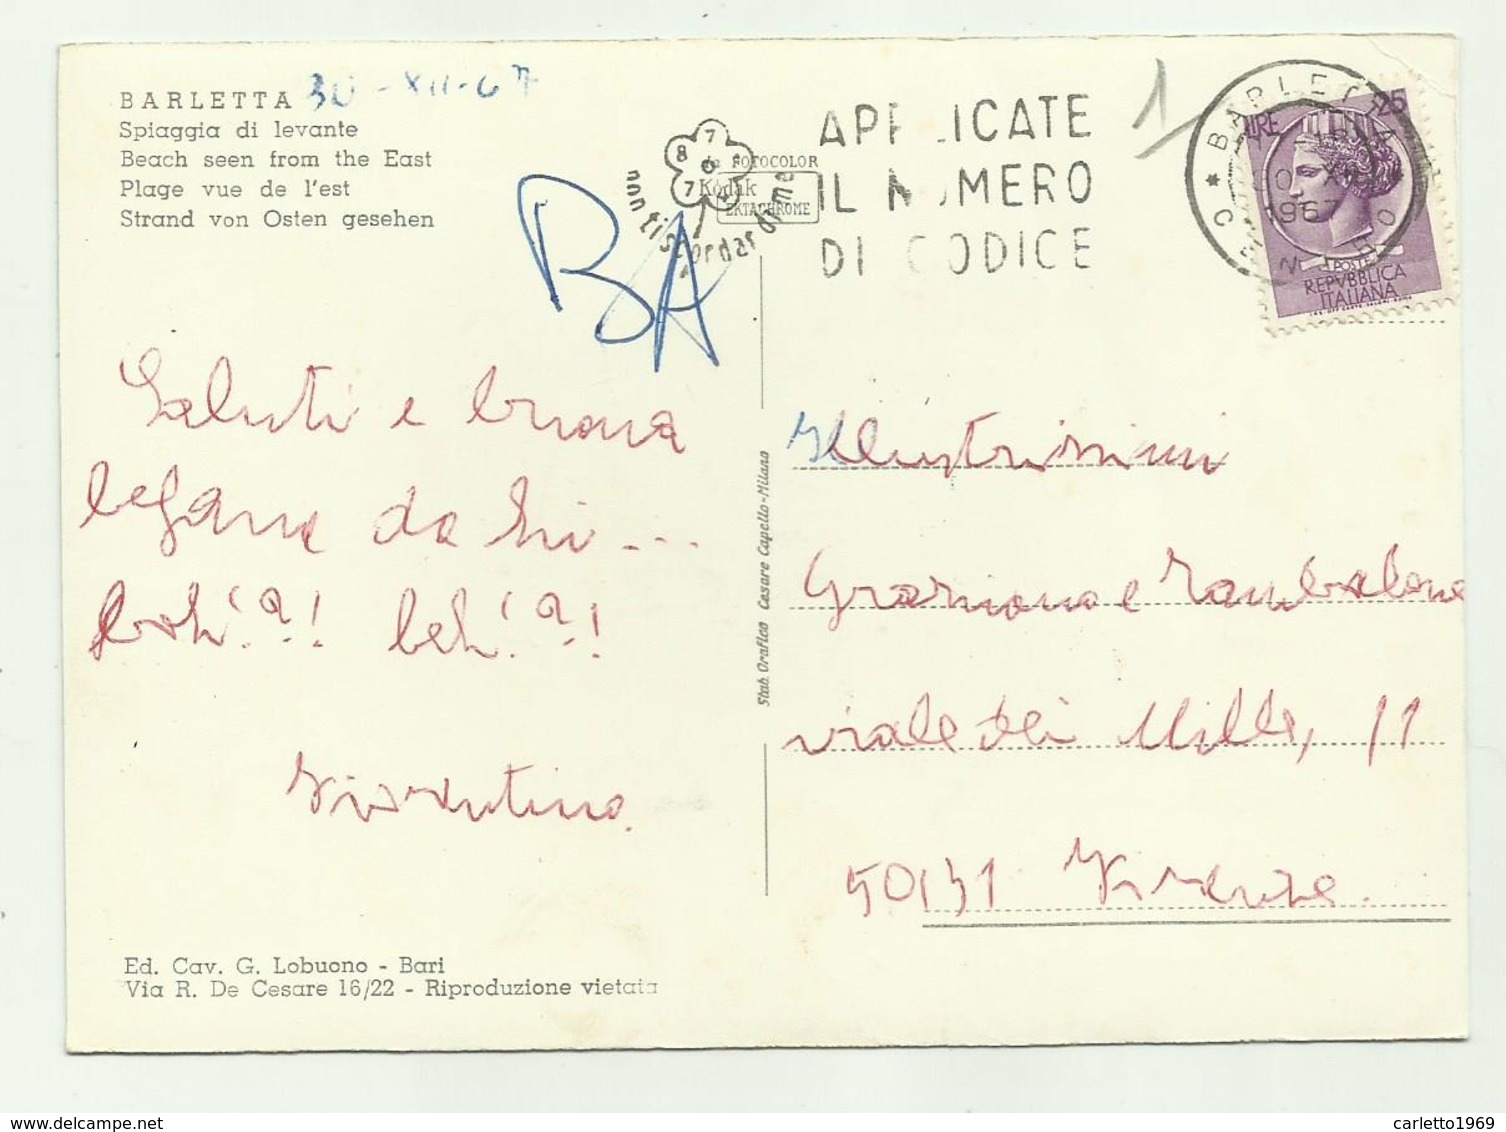 BARLETTA 30-XII-67
Spiaggia di levante
Beach seen from the East
Plage vue de l'est
Strand von Osten gesehen
FOTOCOLOR
Kodak
EKTACHROME
non ti scordar di me
APPLICATE
IL NUMERO
DI CODICE
1
BARLETTA CENTRO
1967
LIRE 25
POSTE
REPVBBLICA
ITALIANA
BA
Saluti e buona
da
boh!?! beh!?!
Fiorentino
Illustrissimi
Graziano e
viale dei Mille, 11
50131 Firenze.
Stab. Grafico Cesare Capello-Milano
Ed. Cav. G. Lobuono - Bari
Via R. De Cesare 16/22 - Riproduzione vietata
carletto1969